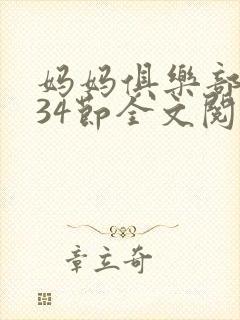 妈妈俱樂部
34節全文閱
章立奇